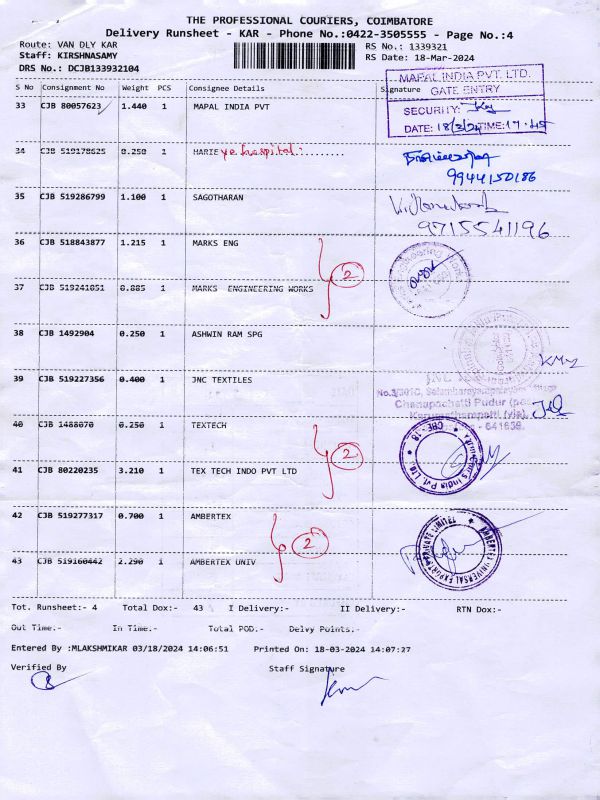 THE PROFESSIONAL COURIERS, COIMBATORE
Delivery Runsheet - KAR - Phone No.:0422-3505555 - Page No.:4
Route: VAN DLY KAR RS No.: 1339321
Staff: KIRSHNASAMY RS Date: 18-Mar-2024
DRS No.: DCJB133932104
S No Consignment No Weight PCS Consignee Details Signature
MAPAL INDIA PVT. LTD.
GATE ENTRY
SECURITY:
DATE: 18/3/24 TIME: 17.45
33 CJB 80057623 1.440 1 MAPAL INDIA PVT
34 CJB 519178625 0.250 1 HARIE ye hospital:........
9944150186
35 CJB 519286799 1.100 1 SAGOTHARAN
9715541196
36 CJB 518843877 1.215 1 MARKS ENG
2
37 CJB 519241851 0.885 1 MARKS ENGINEERING WORKS
38 CJB 1492904 0.250 1 ASHWIN RAM SPG
39 CJB 519227356 0.400 1 JNC TEXTILES
JNC
Chanapachatti Pudur
Karumathampatti (via),
- 641638.
40 CJB 1488070 0.250 1 TEXTECH
2
CBE - 18
India Pvt. Ltd
41 CJB 80220235 3.210 1 TEX TECH INDO PVT LTD
42 CJB 519277317 0.700 1 AMBERTEX
2
AMBERTEX UNIVERSAL EXPORT PRIVATE LIMITED
43 CJB 519160442 2.290 1 AMBERTEX UNIV
Tot. Runsheet:- 4 Total Dox:- 43 I Delivery:- II Delivery:- RTN Dox:-
Out Time.:- In Time.:- Total POD.:- Delvy Points.:-
Entered By :MLAKSHMIKAR 03/18/2024 14:06:51 Printed On: 18-03-2024 14:07:27
Verified By Staff Signature